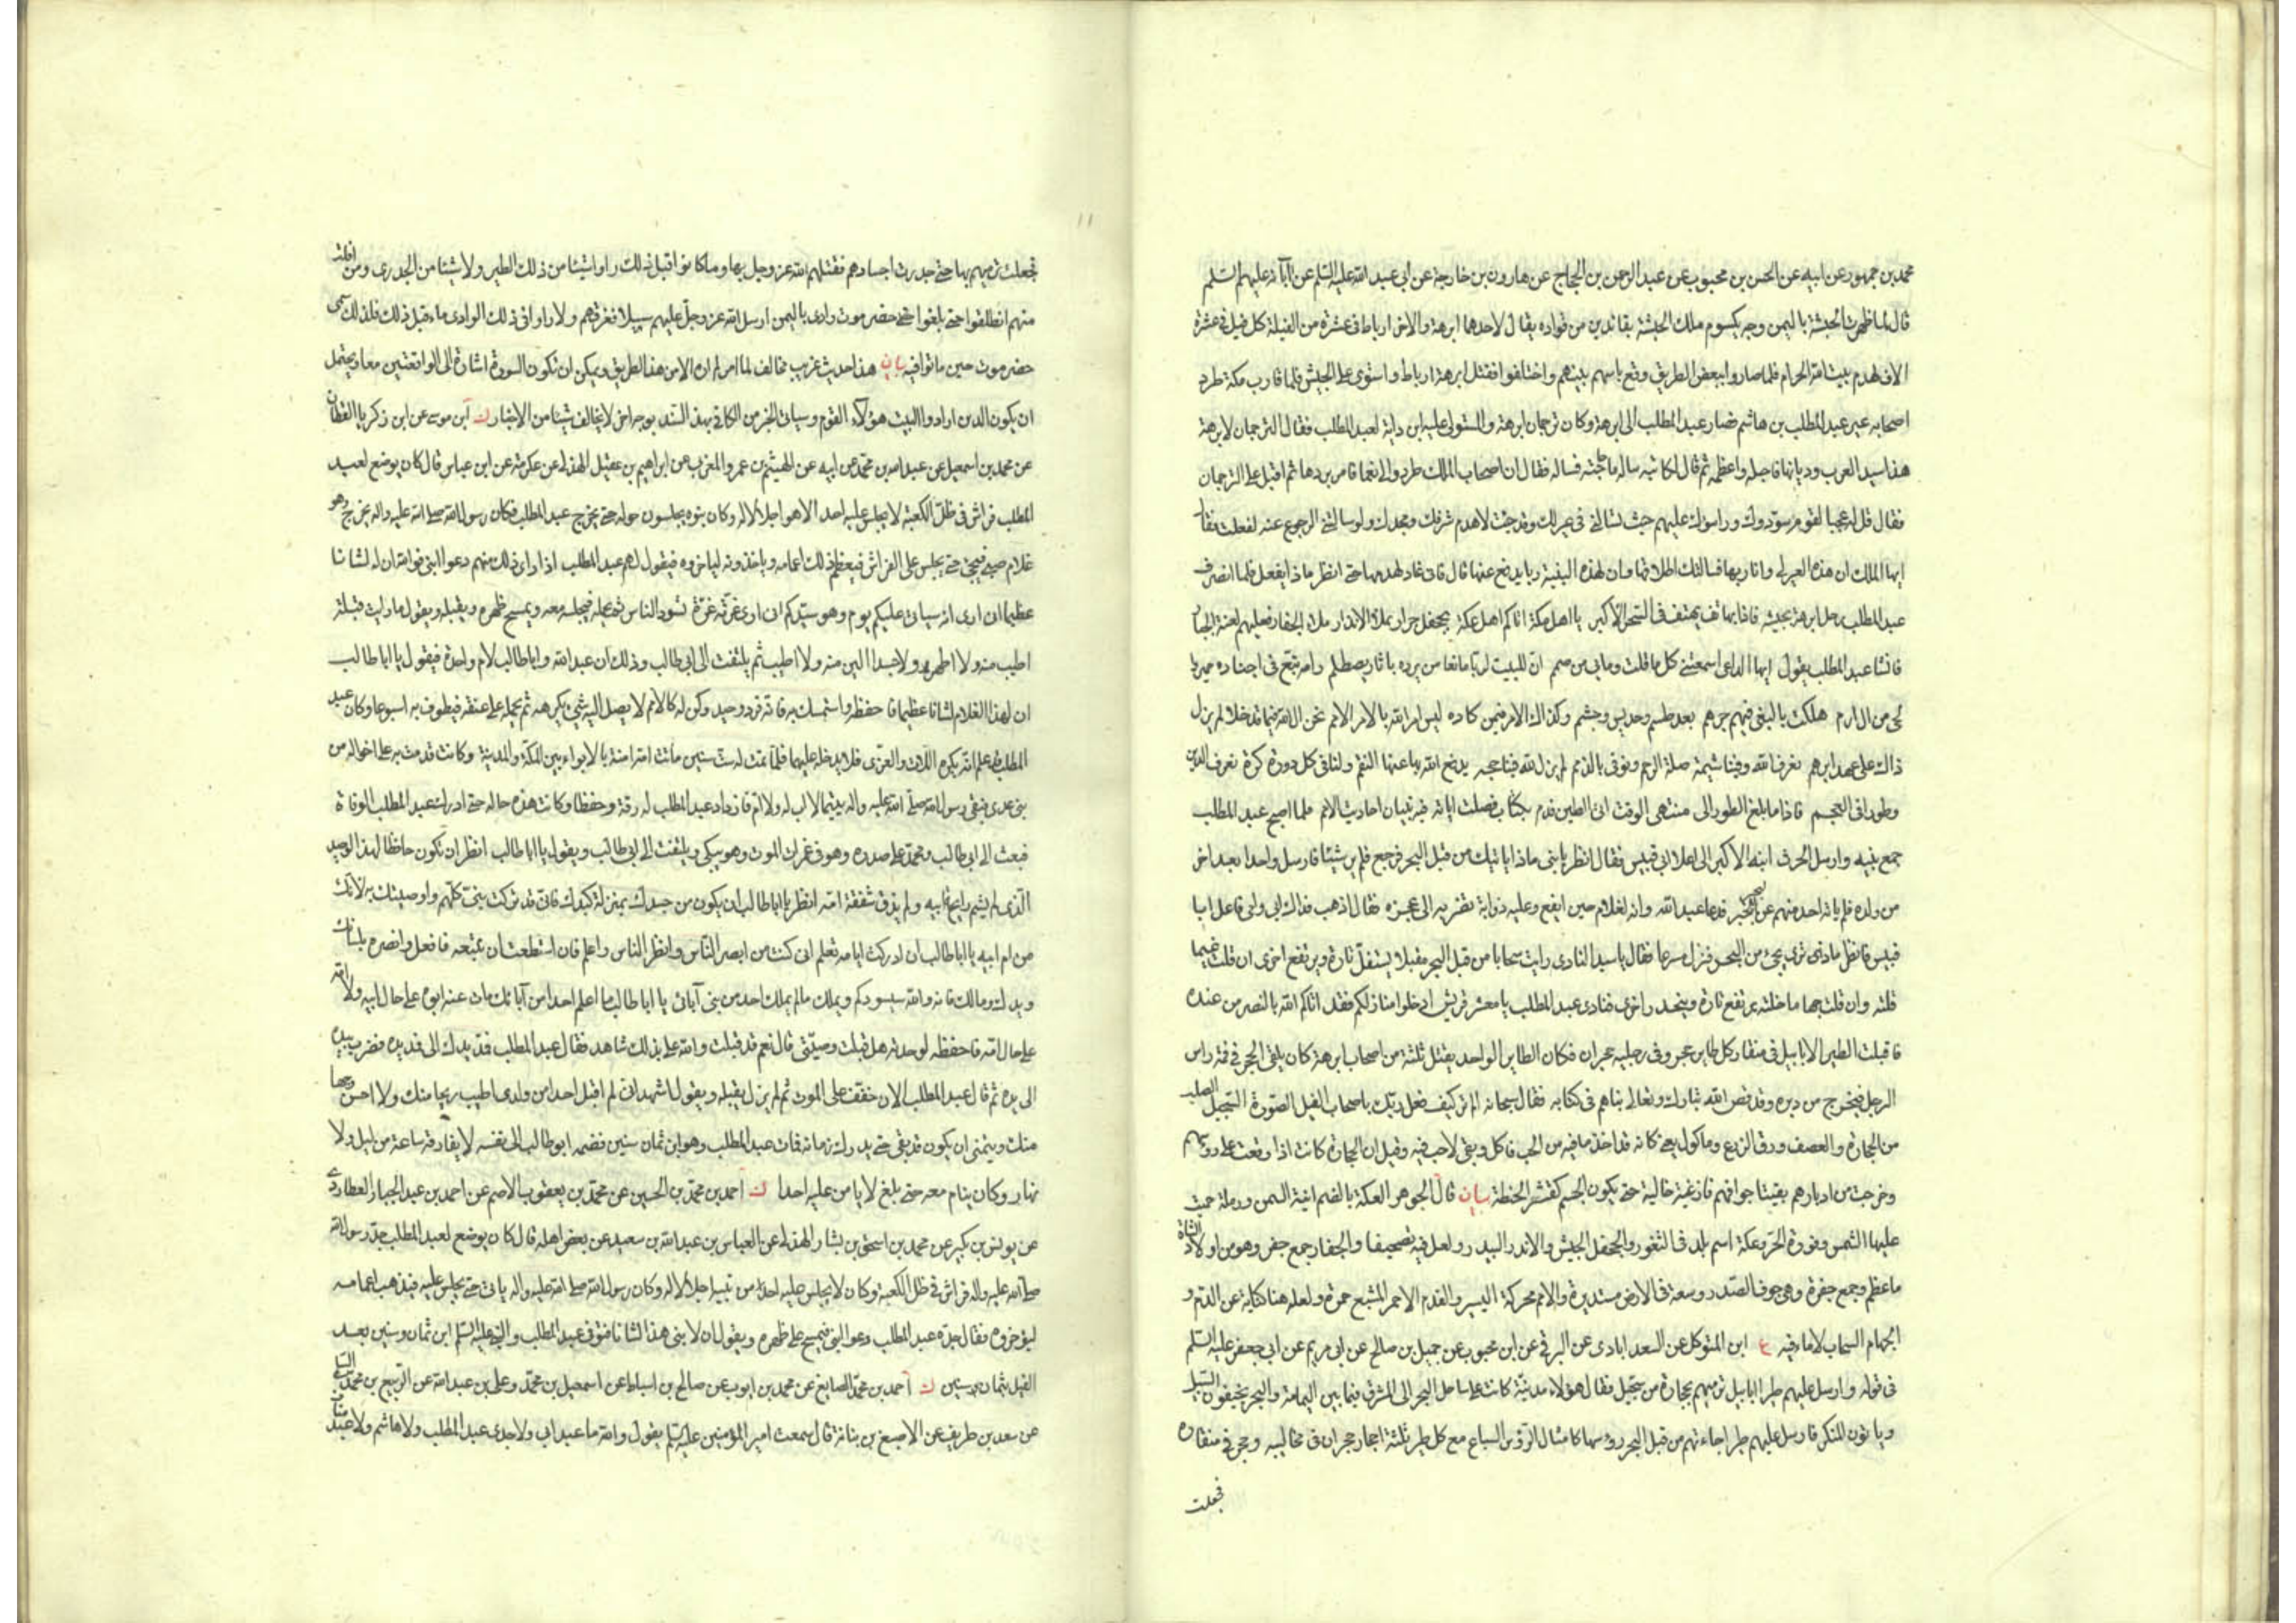 محمد بن جمهور عن ابيه عن الحسن بن محبوب عن عبد الرحمن بن الحجاج عن هارون بن خارجة عن ابي عبد الله عليه السلم عن آبائه عليهم السلم
قال لما ظهرت الحبشة باليمن وجه يكسوم ملك الحبشة بقائدين من قواده يقال لاحدهما ابرهة والاخر ارباط في عشرة من الفيلة كل فيل في عشرة
الاف لهدم بيت الله الحرام فلما صاروا ببعض الطريق وقع باسهم بينهم واختلفوا فقتل ابرهة ارباط واستولى على الجيش فلما قارب مكة طرد
اصحابه عير عبد المطلب بن هاشم فصار عبد المطلب الى ابرهة وكان ترجمان ابرهة والمستولى عليه ابن داية لعبد المطلب فقال الترجمان لابرهة
هذا سيد العرب وديانها فاجله واعظمه ثم قال لكاتبه سله ما حاجته فساله فقال ان اصحاب الملك طردوا لي نعما فامر بردها ثم اقبل على الترجمان
فقال قل له عجبا لقوم سوّدوك وراسوك عليهم حيث تسالني في عير لك وقد جئت لاهدم شرفك ومجدك ولو سالتني الرجوع عنه لفعلت فقال
ايها الملك ان هذه العير لي وانا ربها فسالتك اطلاقها وان لهذه البنية ربا يدفع عنها قال فاني غاد لهدمها حتى انظر ماذا يفعل فلما انصرف
عبد المطلب رحل ابرهة بجيشه فاذا بهاتف يهتف في السحر الاكبر يا اهل مكة اتاكم اهل عكة بجحفل جرار يملا الاندار ملاء الجفار فعليهم لعنة الجبار
فانشا عبد المطلب يقول ايها الداعي اسمعتني كل ما قلت وما بي من صمم ان للبيت لربا مانعا من يرده باثام يصطلم رامه تبّع في اجناده حمير والحى
من ال ارم هلكت بالبغي فيهم جرهم بعد طسم وجديس وجشم وكذاك الامر فيمن كاده ليس امر الله بالامر الامم نحن ال الله فيما قد خلا لم يزل
ذاك على عهد ابرهم نعرف الله وفينا شيمة صلة الرحم ونوفي بالذمم لم يزل لله فينا حجه يدفع الله بها عنها النقم ولنا في كل دورة كرة نعرف الدين
وطورا في العجم فاذا ما بلغ الطور الى منتهى الوقت اتى الطين فدم بكتاب فصلت اياته فيه تبيان احاديث الامم فلما اصبح عبد المطلب
جمع بنيه وارسل الحرث ابنه الاكبر الى اعلا ابي قبيس فقال انظر يا بني ماذا ياتيك من قبل البحر فرجع فلم ير شيئا فارسل واحدا بعد اخر
من ولده فلم ياته احد منهم عن البحر بخبر فدعا عبد الله وانه لغلام حين ايفع وعليه ذوابة تضرب الى عجزه فقال اذهب فداك ابي وامي فاعل ابا
قبيس فانظر ماذا ترى يجئ من البحر فنزل مسرعا فقال يا سيد النادي رايت سحابا من قبل البحر مقبلا يستفل تارة ويرتفع اخرى ان قلت غيما
قلته وان قلت جهاما خلته يرتفع تارة وينحدر اخرى فنادى عبد المطلب يا معشر قريش ادخلوا منازلكم فقد اتاكم الله بالنصر من عنده
فاقبلت الطير الابابيل في منقار كل طاير حجر وفي رجليه حجران فكان الطاير الواحد يقتل ثلثة من اصحاب ابرهة كان يلقي الحجر في قمة راس
الرجل فيخرج من دبره وقد قص الله تبارك وتعالى نباهم في كتابه فقال سبحانه الم تر كيف فعل ربك باصحاب الفيل السورة السجيل الصلب
من الحجارة والعصف ورق الزرع وماكول يعني كانه قد اخذ ما فيه من الحب فاكل وبقي لاحب فيه وقيل ان الحجارة كانت اذا وقعت على رؤسهم
وخرجت من ادبارهم بقيت اجوافهم فارغة خالية حتى يكون الجسم كقشر الحنظلة بيان قال الجوهر العكة بالضم انية السمن ورملة حميت
عليها الشمس وفورة الحر وعكة اسم بلد في الثغور والجحفل الجيش والاندر البيدر ولعل فيه تصحيفا والجفار جمع جفر وهو من اولاد الشاة
ما عظم وجمع جفرة وهي جوف الصدر وسعة في الارض مستديرة والامم محركة اليسير والفدم الاحمر المشبع حمرة ولعله هنا كناية عن الدم و
الجهام السحاب لا ماء فيه ع ابن المتوكل عن السعد ابادي عن البرقي عن ابن محبوب عن جميل بن صالح عن ابي مريم عن ابي جعفر عليه السلم
في قوله وارسل عليهم طيرا ابابيل ترميهم بحجارة من سجيل فقال هؤلاء اهل مدينة كانت على ساحل البحر الى المشرق فيما بين اليمامة والبحر يخيفون السبيل
وياتون المنكر فارسل عليهم طيرا جاءتهم من قبل البحر رؤسها كامثال رؤس السباع مع كل طير ثلثة احجار حجران في مخالبيه وحجر في منقاره
فجعلت
١١
فجعلت ترميهم بها حتى جدرت اجسادهم فقتلهم الله عز وجل بها وما كانوا قبل ذلك راوا شيئا من ذلك الطير ولا شيئا من الجدري ومن افلت
منهم انطلقوا حتى بلغوا حضرموت وادي باليمن ارسل الله عز وجل عليهم سيلا فغرقهم ولا راوا في ذلك الوادي ماء قبل ذلك فلذلك سمي
حضرموت حين ماتوا فيه بيان هذا حديث غريب مخالف لما مر ولم اره الا من هذا الطريق ويمكن ان تكون السورة اشارة الى الواقعتين معا ويحتمل
ان يكون الذين ارادوا البيت هؤلاء القوم وسياتي الخبر من الكافي بهذا السند بوجه اخر لا يخالف شيئا من الاخبار ك ابن موسى عن ابن زكريا القطان
عن محمد بن اسمعيل عن عبد الله بن محمد عن ابيه عن الهيثم بن عمرو المزني عن ابراهيم بن عقيل الهذلي عن عكرمة عن ابن عباس قال كان يوضع لعبد
المطلب فراش في ظل الكعبة لا يجلس عليه احد الا هو اجلالا له وكان بنوه يجلسون حوله حتى يخرج عبد المطلب فكان رسول الله صلى الله عليه واله يخرج وهو
غلام صبي فيجئ حتى يجلس على الفراش فيعظم ذلك اعمامه وياخذونه ليؤخروه فيقول لهم عبد المطلب اذا راى ذلك منهم دعوا ابني فوالله ان له لشانا
عظيما اني ارى انه سياتي عليكم يوم وهو سيدكم اني ارى غرته غرة تسود الناس ثم يحمله فيجلسه معه ويمسح ظهره ويقبله ويقول ما رايت قبلة
اطيب منه ولا اطهر ولا جسدا الين منه ولا اطيب ثم يلتفت الى ابي طالب وذلك ان عبد الله وابا طالب لام واحدة فيقول يا ابا طالب
ان لهذا الغلام لشانا عظيما فاحفظه واستمسك به فانه فرد وحيد وكن له كالام لا يصل اليه شئ يكرهه ثم يحمله على عنقه فيطوف به اسبوعا وكان عبد
المطلب قد علم انه يكره اللات والعزى فلا يدخله عليهما فلما تمت له ست سنين ماتت امه امنة بالابواء بين المكة والمدينة وكانت قدمت به على اخواله من
بني عدي فبقي رسول الله صلى الله عليه واله يتيما لا اب له ولا ام فازداد عبد المطلب له رقة وحفظا وكانت هذه حاله حتى ادركت عبد المطلب الوفاة
فبعث الى ابي طالب ومحمد على صدره وهو في غمرات الموت وهو يبكي ويلتفت الى ابي طالب ويقول يا ابا طالب انظر ان تكون حافظا لهذا الوحيد
الذي لم يشم رايحة ابيه ولم يذق شفقة امه انظر يا ابا طالب ان يكون من جسدك بمنزلة كبدك فاني قد تركت بني كلهم واوصيتك به لانك
من ام ابيه يا ابا طالب ان ادركت ايامه تعلم اني كنت من ابصر الناس وانظر الناس واعلم فان استطعت ان تتبعه فافعل وانصره بلسانك
ويدك ومالك فانه والله سيسودكم ويملك ما لم يملك احد من بني آبائي يا ابا طالب ما اعلم احدا من آبائك مات عنه ابوه على حال ابيه ولا امه
على حال امه فاحفظه لوحدته هل قبلت وصيتي قال نعم قد قبلت والله على بذلك شاهد فقال عبد المطلب فمد يدك الى فمد يده فضرب بيده
الى يده ثم قال عبد المطلب الان خفف على الموت ثم لم يزل يقبله ويقول اشهد اني لم اقبل احدا من ولدي اطيب ريحا منك ولا احسن وجها
منك ويتمنى ان يكون قد بقي حتى يدرك زمانه فمات عبد المطلب وهو ابن ثمان سنين فضمه ابو طالب الى نفسه لا يفارقه ساعة من ليل ولا
نهار وكان ينام معه حتى بلغ لا يامن عليه احدا ك احمد بن محمد بن الحسين عن محمد بن يعقوب الاصم عن احمد بن عبد الجبار العطاردي
عن يونس بن بكير عن محمد بن اسحق بن بشار الهذلي عن العباس بن عبد الله بن سعيد عن بعض اهله قال كان يوضع لعبد المطلب جد رسول الله
صلى الله عليه واله فراش في ظل الكعبة وكان لا يجلس عليه احد من بنيه اجلالا له وكان رسول الله صلى الله عليه واله ياتي حتى يجلس عليه فيذهب اعمامه
ليؤخروه فقال جده عبد المطلب دعوا ابني فيمسح على ظهره ويقول ان لابني هذا لشانا فتوفي عبد المطلب والنبي عليه السلم ابن ثمان وسنين بعد
الفيل بثمان سنين ك احمد بن محمد الصايغ عن محمد بن ايوب عن صالح بن اسباط عن اسمعيل بن محمد وعلي بن عبد الله عن الربيع بن محمد السلمي
عن سعد بن طريف عن الاصبغ بن نباتة قال سمعت امير المؤمنين عليه السلم يقول والله ما عبد ابي ولا جدي عبد المطلب ولا هاشم ولا عبد مناف